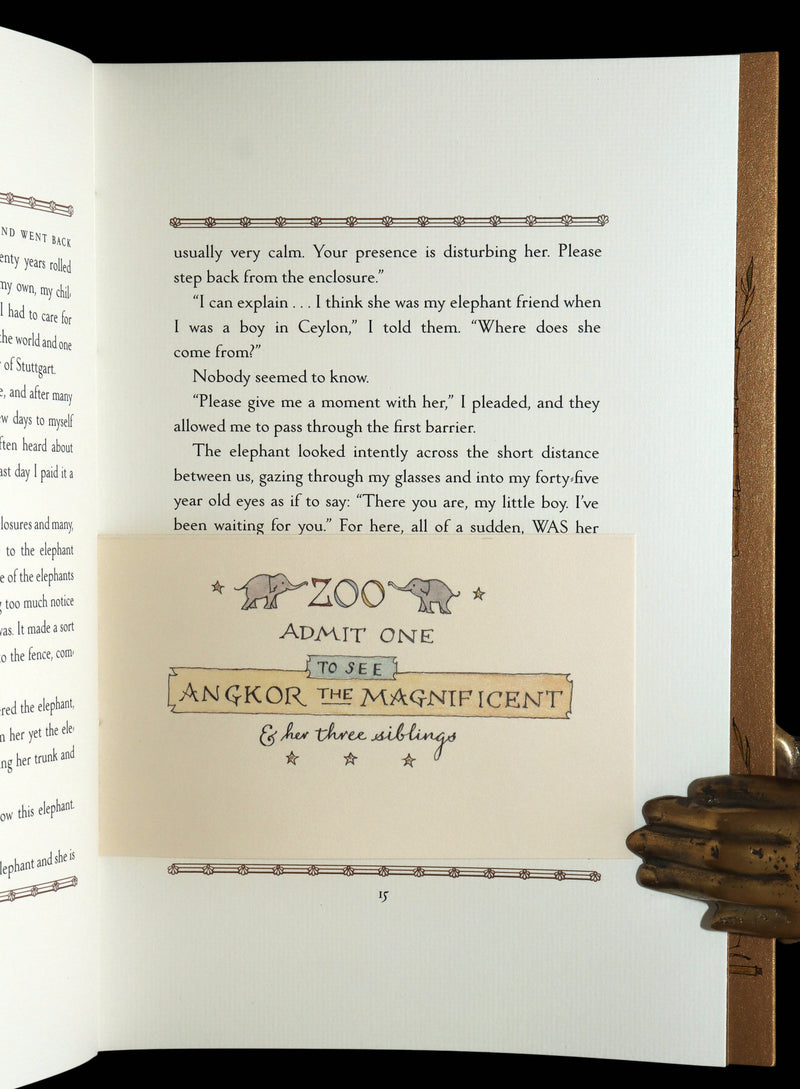 ND WENT BACK
enty years rolled
my own, my chil-
I had to care for
the world and one
of Stuttgart.
e, and after many
w days to myself
ften heard about
ast day I paid it a
losures and many,
to the elephant
e of the elephants
too much notice
was. It made a sort
o the fence, com-
red the elephant,
n her yet the ele-
ng her trunk and
ow this elephant.
lephant and she is
usually very calm. Your presence is disturbing her. Please
step back from the enclosure.”
“I can explain . . . I think she was my elephant friend when
I was a boy in Ceylon,” I told them. “Where does she
come from?”
Nobody seemed to know.
“Please give me a moment with her,” I pleaded, and they
allowed me to pass through the first barrier.
The elephant looked intently across the short distance
between us, gazing through my glasses and into my forty-five
year old eyes as if to say: “There you are, my little boy. I’ve
been waiting for you.” For here, all of a sudden, WAS her
ZOO
ADMIT ONE
TO SEE
ANGKOR THE MAGNIFICENT
& her three siblings
15